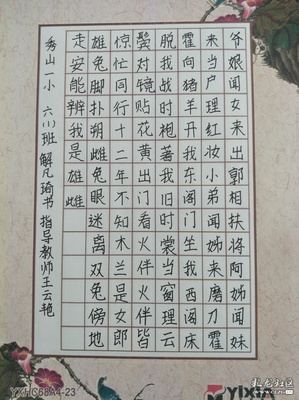 爷娘闻女来出郭相扶将阿姊闻妹
来当户理红妆小弟闻姊来磨刀霍
霍向猪羊开我东阁门坐我西阁床
脱我战时袍著我旧时裳当窗理云
鬓对镜贴花黄出门看火伴火伴皆
惊忙同行十二年不知木兰是女郎
雄兔脚扑朔雌兔眼迷离双兔傍地
走安能辨我是雄雌
秀山一小 六(1)班 解凡琦书 指导教师王云艳
YXHC68A4-23